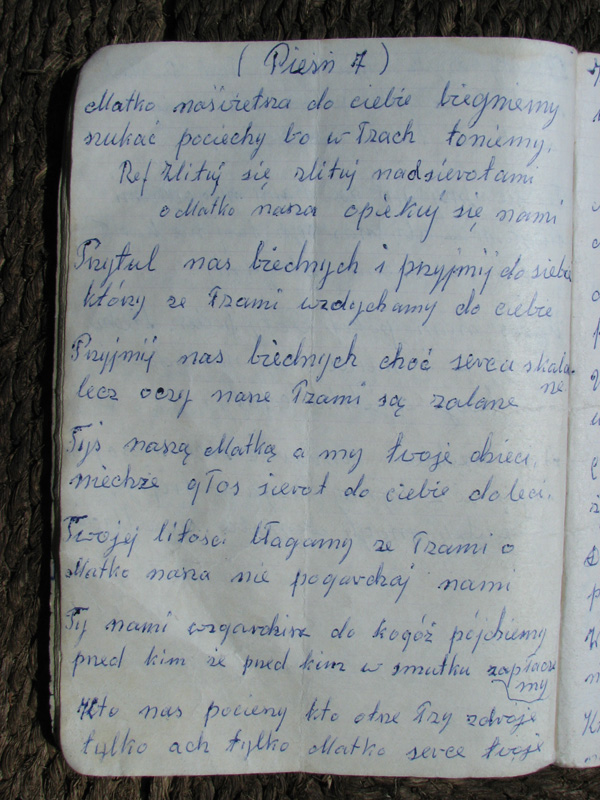 ( Pieśń 7 )
Matko naświetsza do ciebie biegniemy
szukać pociechy bo w łzach toniemy.
Ref Zlituj się zlituj nad sierotami
o Matko nasza opiekuj się nami
Przytul nas biednych i przyjmij do siebie
który ze łzami wzdychamy do ciebie
Przyjmij nas biednych choć serca skala-
ne
lecz oczy nasze łzami są zalane
Tyś naszą Matką a my twoje dzieci.
niechże głos sierot do ciebie doleci.
Twojej litości błagamy ze łzami o
Matko nasza nie pogardzaj nami
Ty nami wzgardzisz do kogóż pójdziemy
przed kim że przed kim w smutku zapłacze
my
Kto nas pocieszy kto otrze łzy zdroje
tylko ach tylko Matko serce twoje